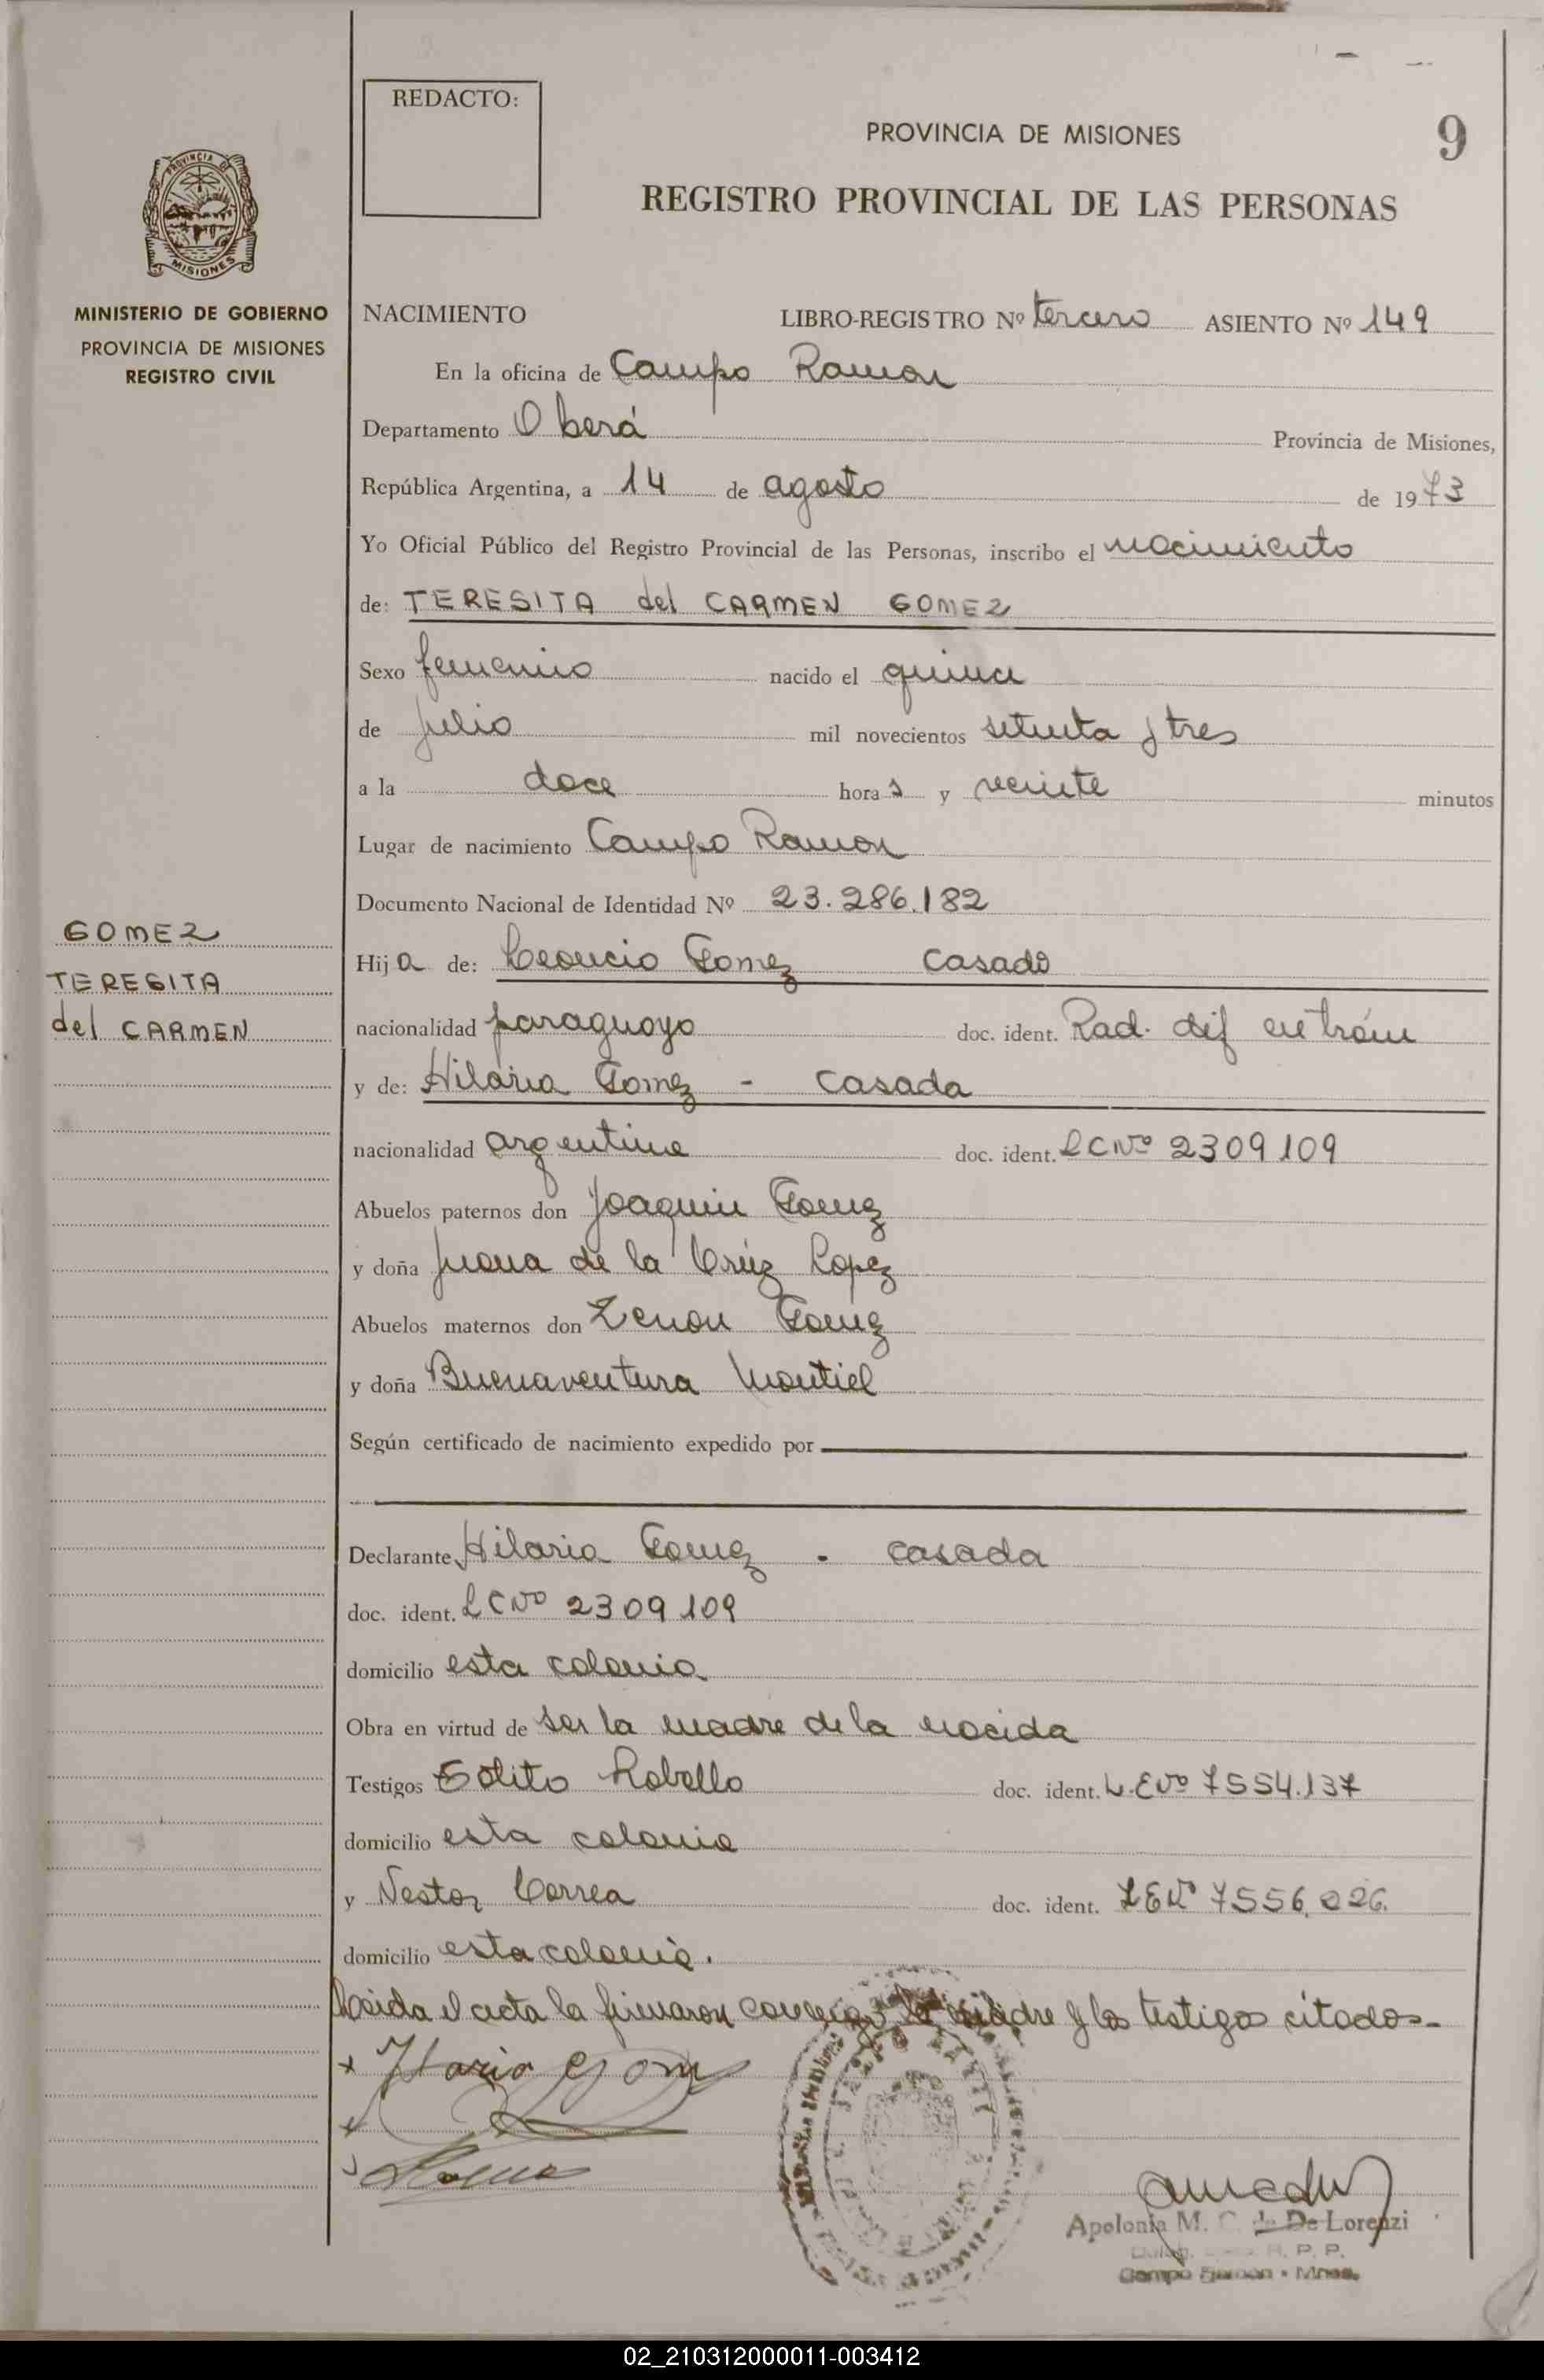 REDACTO:
PROVINCIA DE MISIONES
9
REGISTRO PROVINCIAL DE LAS PERSONAS
PROVINCIA DE
MISIONES
MINISTERIO DE GOBIERNO
PROVINCIA DE MISIONES
REGISTRO CIVIL
NACIMIENTO LIBRO-REGISTRO Nº tercero ASIENTO Nº 149
En la oficina de Campo Ramon
Departamento Oberá Provincia de Misiones,
República Argentina, a 14 de agosto de 1973
Yo Oficial Público del Registro Provincial de las Personas, inscribo el nacimiento
de: TERESITA del CARMEN GOMEZ
Sexo femenino nacido el quince
de julio mil novecientos setenta y tres
a la doce horas y veinte minutos
Lugar de nacimiento Campo Ramon
Documento Nacional de Identidad Nº 23.286.182
GOMEZ
TERESITA
del CARMEN
Hija de: Leoncio Gomez Casado
nacionalidad paraguayo doc. ident. Rad. dif en trám
y de: Hilaria Gomez - casada
nacionalidad argentina doc. ident. LC Nº 2309109
Abuelos paternos don Joaquin Gomez
y doña Juana de la Crúz Lopez
Abuelos maternos don Zenon Gomez
y doña Buenaventura Montiel
Según certificado de nacimiento expedido por
Declarante Hilaria Gomez - casada
doc. ident. LC Nº 2309109
domicilio esta colonia
Obra en virtud de ser la madre de la nacida
Testigos Robello doc. ident. L.E Nº 7554.137
domicilio esta colonia
y Nestor Correa doc. ident. LE Nº 7556.026.
domicilio esta colonia.
Leida el acta la firmaron conmigo la madre y los testigos citados-
Apolonia M. C. de De Lorenzi
R. P. P.
Campo Ramon - Mnes.
02_210312000011-003412